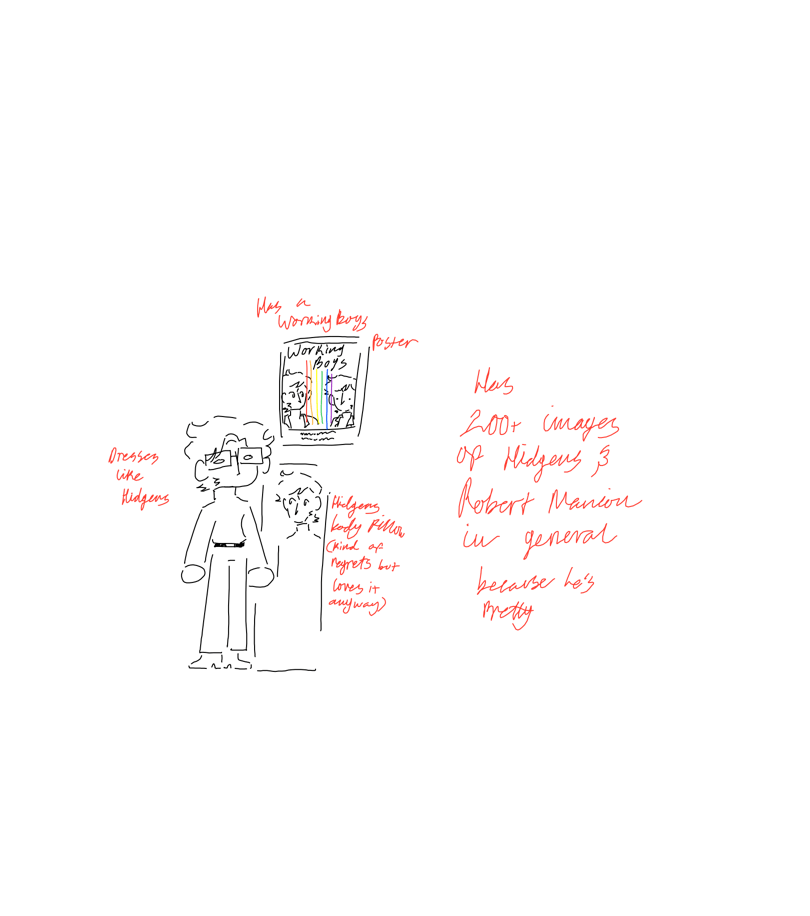 Has a
Working Boys
Poster
Working
Boys
Dresses
like
Hidgens
Hidgens
body Pillow
(kind of
regrets but
loves it
anyway)
Has
200+ images
of Hidgens &
Robert Manion
in general
because he's
Pretty